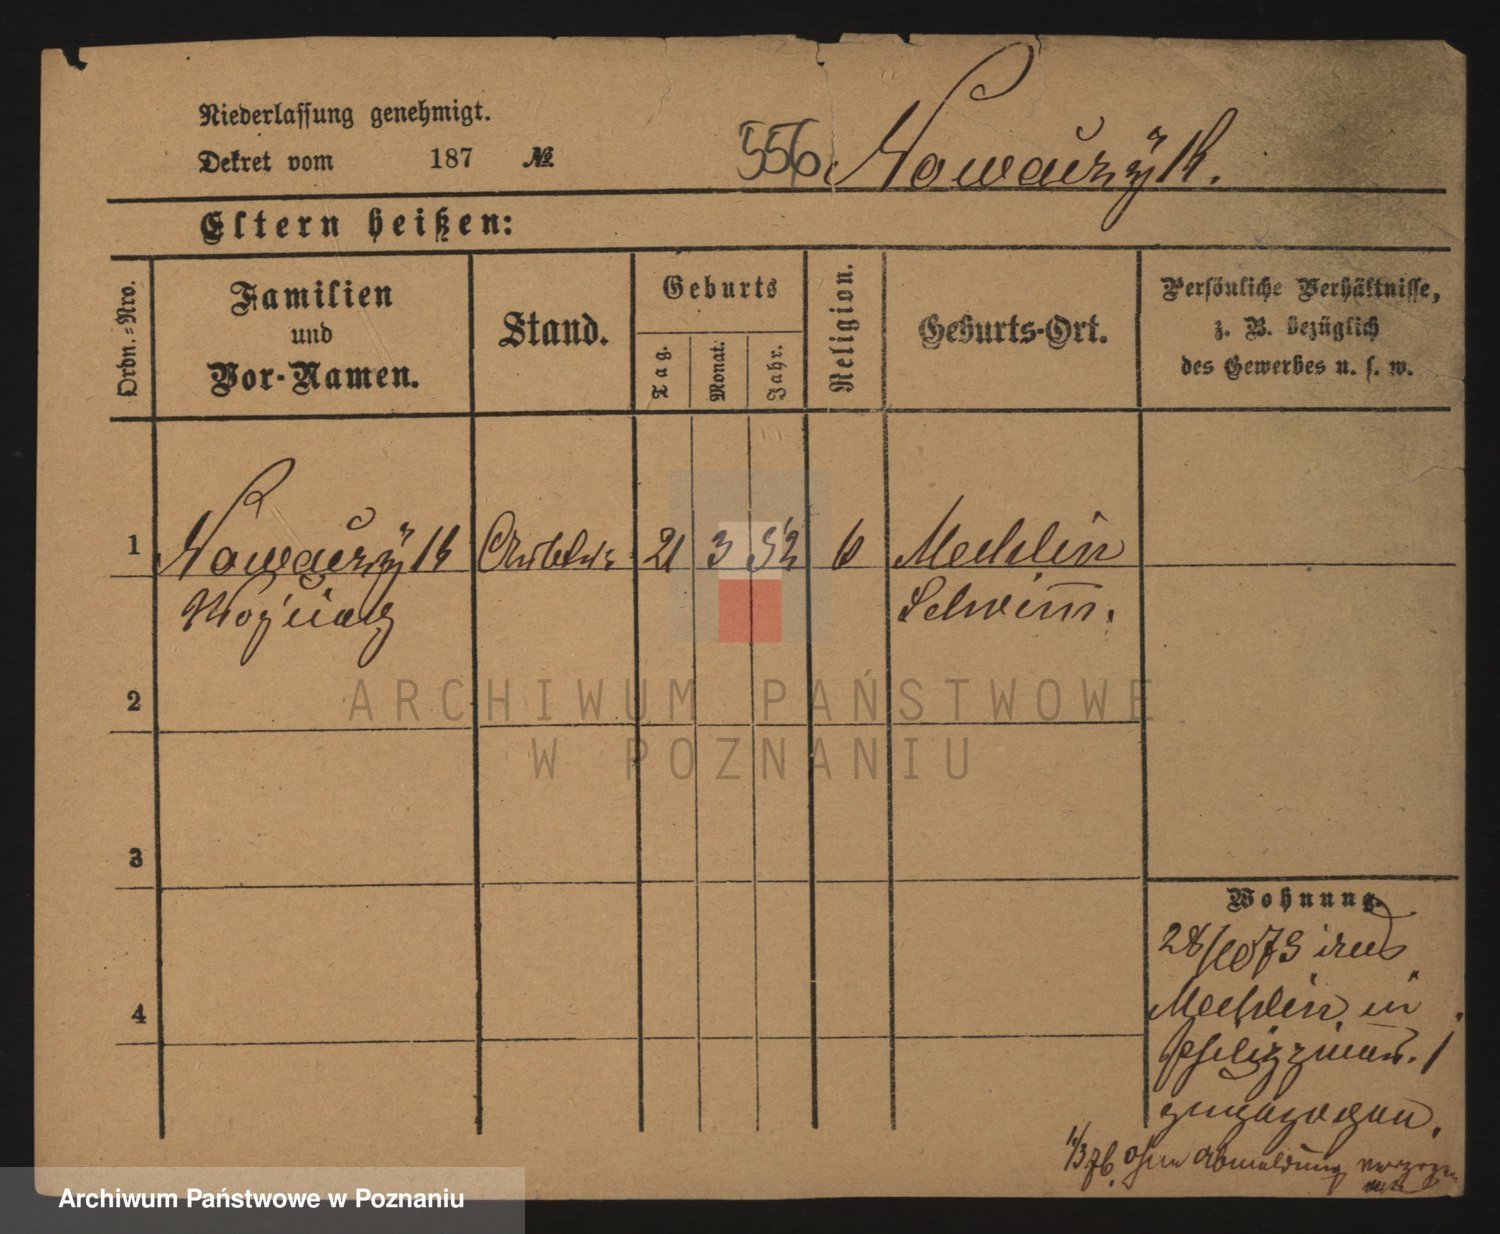 Niederlassung genehmigt.
Dekret vom 187 №
556 Nowaczyk.
Eltern heißen:
Ordn.-Nro.
Familien
und
Vor-Namen.
Stand.
Geburts
Tag.
Monat.
Jahr.
Religion.
Geburts-Ort.
Persönliche Verhältnisse,
z. B. bezüglich
des Gewerbes u. s. w.
1 Nowaczyk Arbeiter 21 3 52 Mechlin
Woyciech Schrimm.
2
ARCHIWUM PAŃSTWOWE
W POZNANIU
3
Wohnung.
28/10 73 aus
Mechlin in
1
zugezogen.
4
1/3 76. ohne Abmeldung verzogen
Archiwum Państwowe w Poznaniu